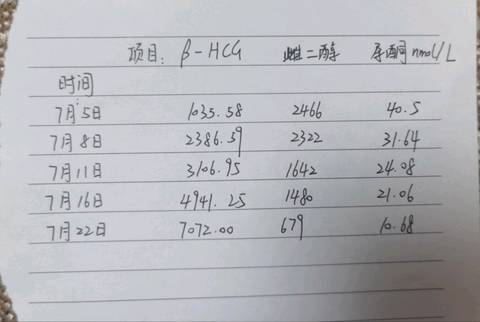 项目: β-HCG 雌二醇 孕酮 nmol/L
时间
7月5日 1035.58 2466 40.5
7月8日 2386.39 2322 31.64
7月11日 3106.95 1642 24.08
7月16日 4941.25 1480 21.06
7月22日 7072.00 679 10.68